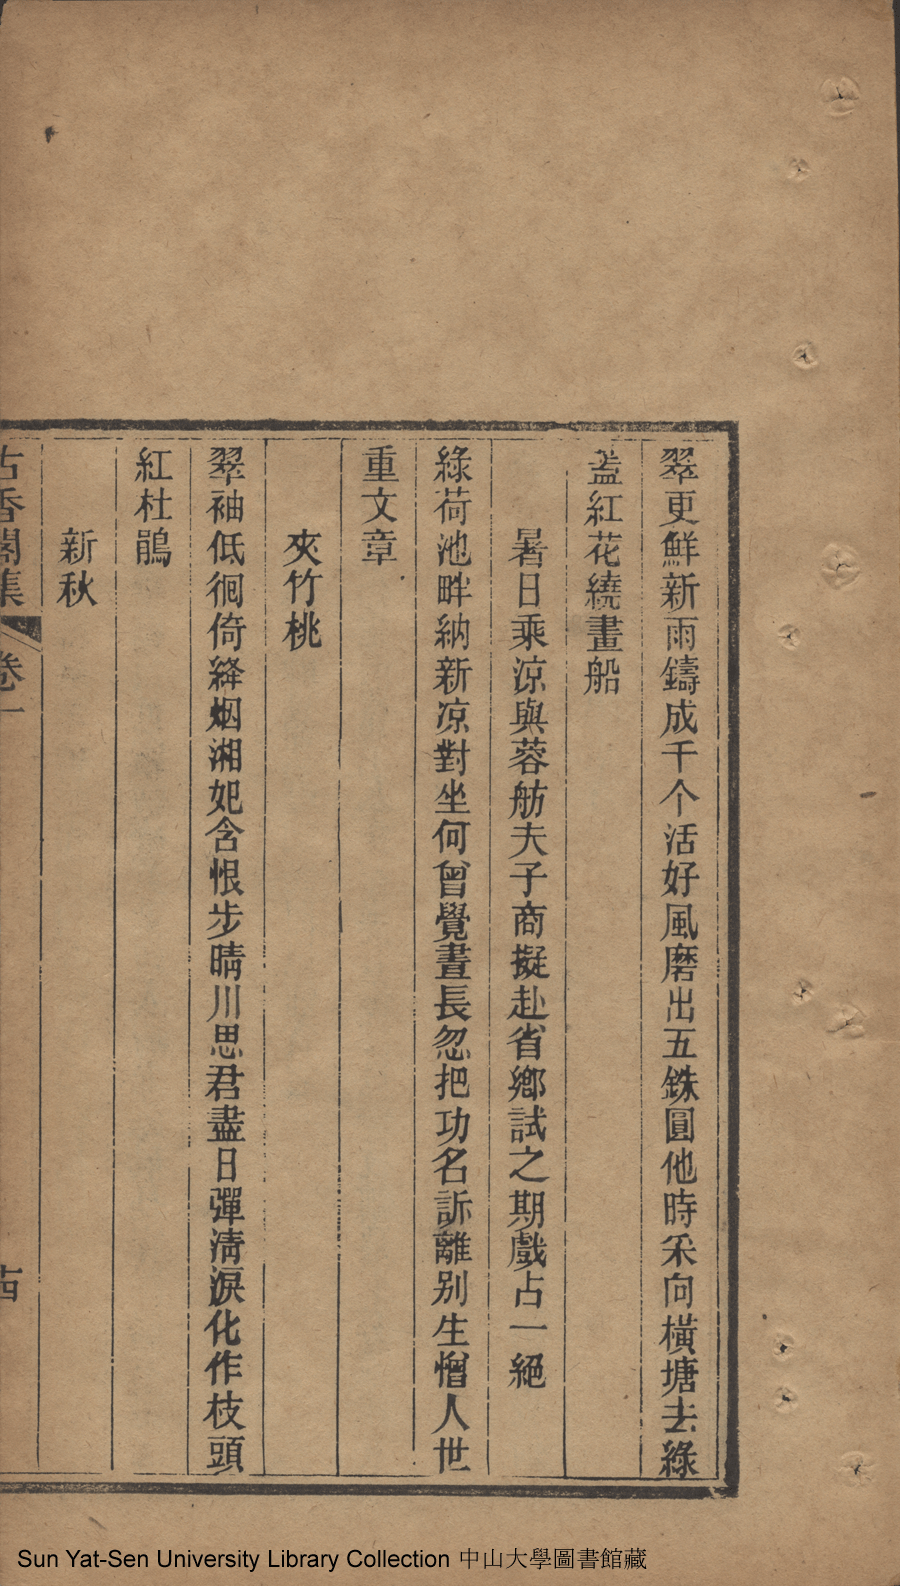 翠更鮮新雨鑄成千个活好風磨出五銖圓他時采向橫塘去綠
葢紅花繞畫船
暑日乘涼與蓉舫夫子商擬赴省鄉試之期戲占一絕
綠荷池畔納新凉對坐何曾覺晝長忽把功名訴離別生憎人世
重文章
夾竹桃
翠袖低徊倚絳烟湘妃含恨步晴川思君盡日彈清淚化作枝頭
紅杜鵑
新秋
古香閣集 卷一 十四
Sun Yat-Sen University Library Collection 中山大學圖書館藏